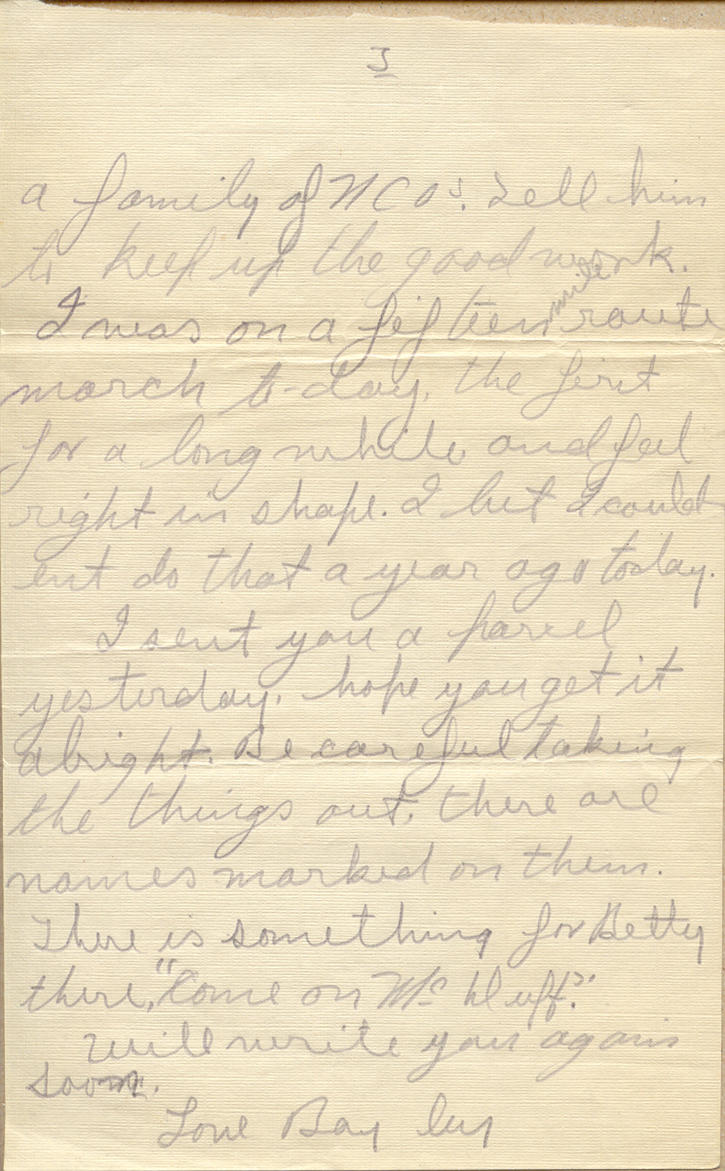 3
a family of NCOs. Tell him
to keep up the good work.
I was on a fifteen mile route
march to-day, the first
for a long while and feel
right in shape. I bet I could
ent do that a year ago today.
I sent you a parcel
yesterday, hope you get it
alright. Be careful taking
the things out, there are
names marked on them.
There is something for Betty
there, "Come on Mc
Will write you again
soon.
Love Bay